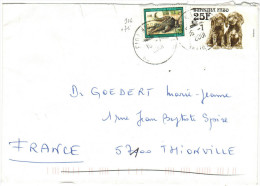 BURKINA FASO
25F
D. GOEBERT Marie-Jeanne
1 rue Jean Baptiste Spire
FRANCE 57100 THIONVILLE